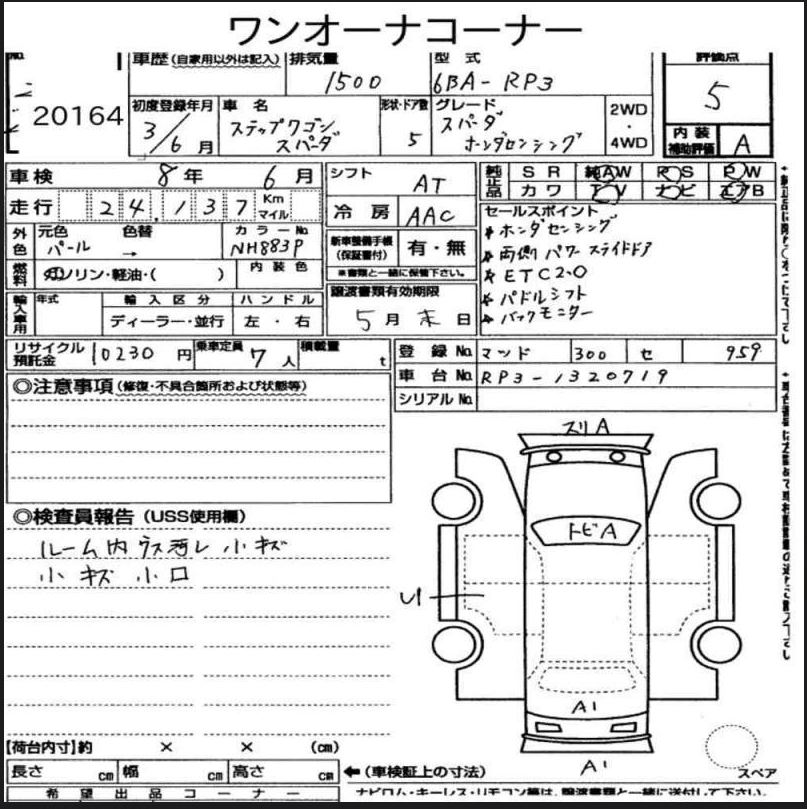 ワンオーナコーナー
No.
20164
車歴 (自家用以外は記入)
排気量
1500
型式
6BA-RP3
評価点
5
初度登録年月
3/6月
車名
ステップワゴン
スパーダ
形状・ドア数
5
グレード
スパーダ
ホンダセンシング
2WD
・
4WD
内装
補助評価
A
車検 8年 6月
走行 24,137 Km マイル
シフト AT
冷房 AAC
純正品 SR 純AW RS PW
カワ TV ナビ エアB
外色 元色 パール 色替 → カラーNo. NH883P
燃料 ガソリン・軽油・( ) 内装色
新車整備手帳
(保証書付)
有・無
※書類と一緒に保管下さい。
セールスポイント
* ホンダセンシング
* 両側パワースライドドア
* ETC2.0
* パドルシフト
* バックモニター
輸入車用 年式 輸入区分 ハンドル
ディーラー・並行 左・右
譲渡書類有効期限
5月末日
リサイクル
預託金
10230円
乗車定員 7人
積載量 t
登録No.
300 せ 959
車台No. RP3-1320719
シリアルNo.
◎注意事項 (修復・不具合箇所および状態等)
◎検査員報告 (USS使用欄)
ルーム内ウス汚レ 小キズ
小キズ 小凹
スリA
トビA
U1
A1
A1
スペア
【荷台内寸】約 × × (cm)
長さ cm 幅 cm 高さ cm
←(車検証上の寸法)
希望出品コーナー
ナビロム・キーレス・リモコン等は、譲渡書類と一緒に送付して下さい。